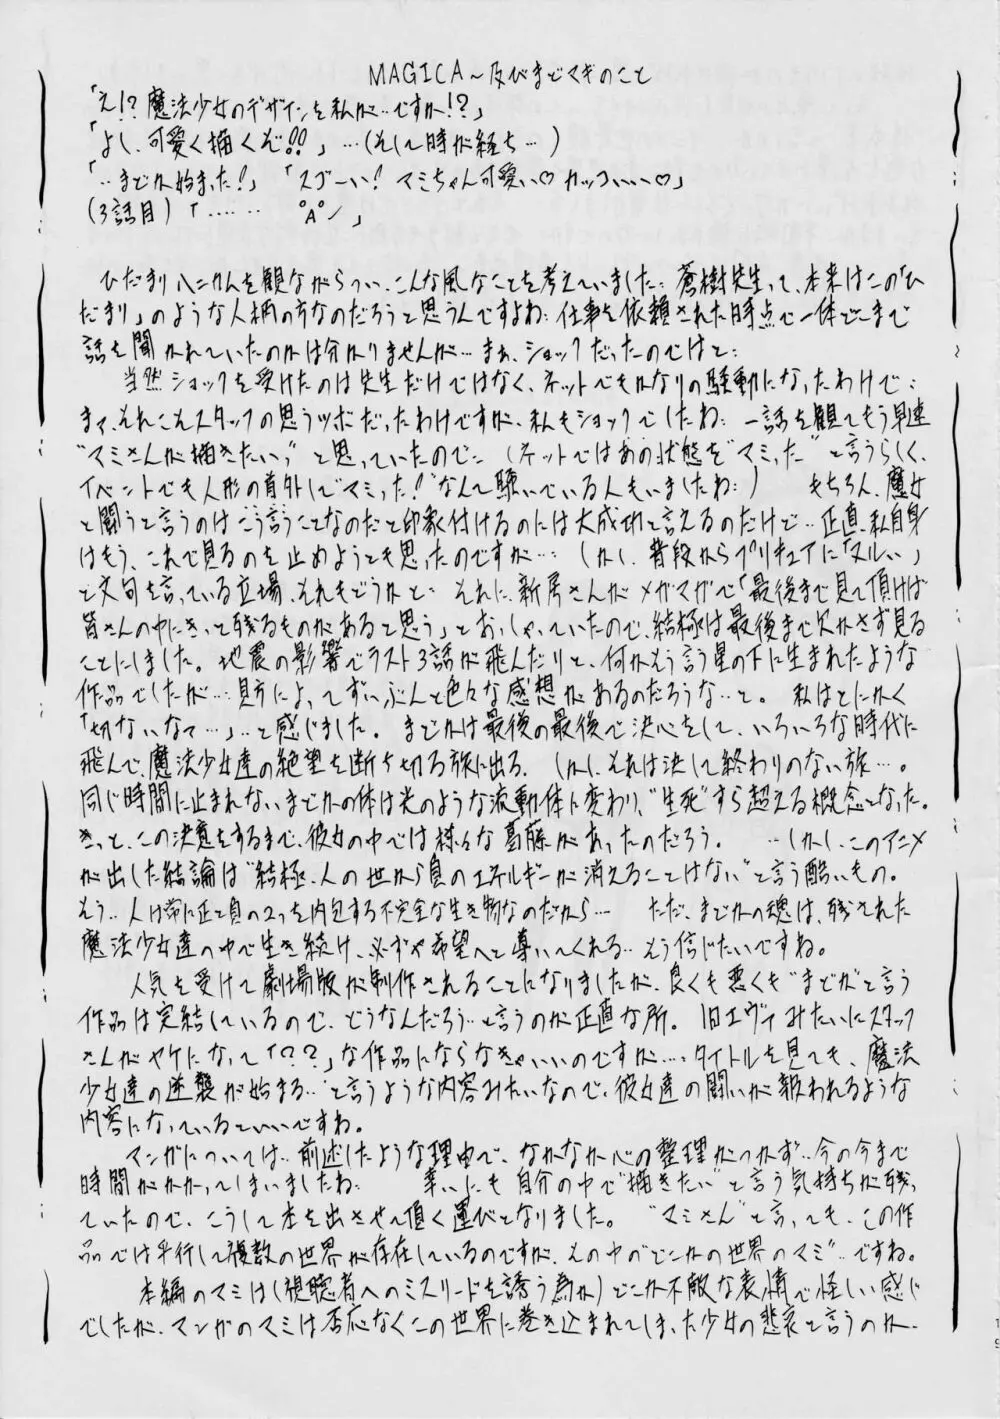 MAGICA～及びまどマギのこと
「え!? 魔法少女のデザインを私が…ですか!?」
「よし、可愛く描くぞ!!」…(そして時が経ち…)
「…まどか始まった!」「スゴーい! マミちゃん可愛い♡ カッコいい♡」
(3話目)「…… °A°ノ 」
ひだまりハニカムを観ながらつい、こんな風なことを考えていました… 蒼樹先生って、本来はこの「ひ
だまり」のような人柄の方なのだろうと思うんですよね… 仕事を依頼された時点で一体どこまで
話を聞かれていたのかは分かりませんが… まぁ、ショックだったのではと…
当然ショックを受けたのは先生だけではなく、ネットでもかなりの騒動になったわけで…
まァ、それこそスタッフの思うツボだったわけですが、私もショックでしたね… 一話を観てもう早速
"マミさんが描きたいっ"と思っていたので… (ネットではあの状態を"マミった"と言うらしく、
イベントでも人形の首外して"マミった!"なんて騒いでいる人もいましたね…) もちろん、魔女
と闘うと言うのはこう言うことなのだと印象付けるのには大成功と言えるのだけど… 正直、私自身
はもう、これで見るのを止めようとも思ったのですが… しかし、普段からプリキュアに「ヌルい」
と文句を言っている立場、それもどうかと… それに、新房さんがメガマガで「最後まで見て頂けば
皆さんの中にきっと残るものがあると思う」とおっしゃっていたので、結極は最後まで欠かさず見る
ことにしました。地震の影響でラスト3話が飛んだりと、何かもう言う星の下に生まれたような
作品でしたが… 見方によってずいぶんと色々な感想があるのだろうな…と。 私はとにかく
「切ないなァ…」…と感じました。まどかは最後の最後で決心をして、いろいろな時代に
飛んで、魔法少女達の絶望を断ち切る旅に出る。しかし、それは決して終わりのない旅…。
同じ時間に止まれないまどかの体は光のような流動体に変わり、"生死"すら超える概念となった。
きっと、この決意をするまで、彼女の中では様々な葛藤があったのだろう。 …しかし、このアニメ
が出した結論は"結極、人の世から負のエネルギーが消えることはない"と言う酷いもの。
もう… 人は常に正と負の2つを内包する不完全な生き物なのだから… ただ、まどかの魂は、残された
魔法少女達の中で生き続け、必ずや希望へと導いてくれる… もう信じたいですね。
人気を受けて劇場版が制作されることになりましたが、良くも悪くも"まどか"と言う
作品は完結しているので、どうなんだろう…と言うのが正直な所。旧エヴァみたいにスタッフ
さんがヤケになって「??」な作品にならなきゃいいのですが… タイトルを見ても、魔法
少女達の逆襲が始まる…"と言うような内容みたいなので、彼女達の闘いが報われるような
内容になっているといいですね。
マンガについては… 前述したような理由で、なかなか心の整理がつかず… 今の今まで
時間がかかってしまいましたね… 幸いにも自分の中で"描きたい"と言う気持ちが残っ
ていたので、こうして本を出させて頂く運びとなりました。"マミさん"と言っても、この作
品では平行して複数の世界が存在しているのですが、その中の"どこかの世界のマミ"…ですね。
本編のマミは(視聴者へのミスリードを誘う為か)どこか不敵な表情で怪しい感じ
でしたが、マンガのマミは否応なくこの世界に巻き込まれてしまった少女の悲哀と言うのか、